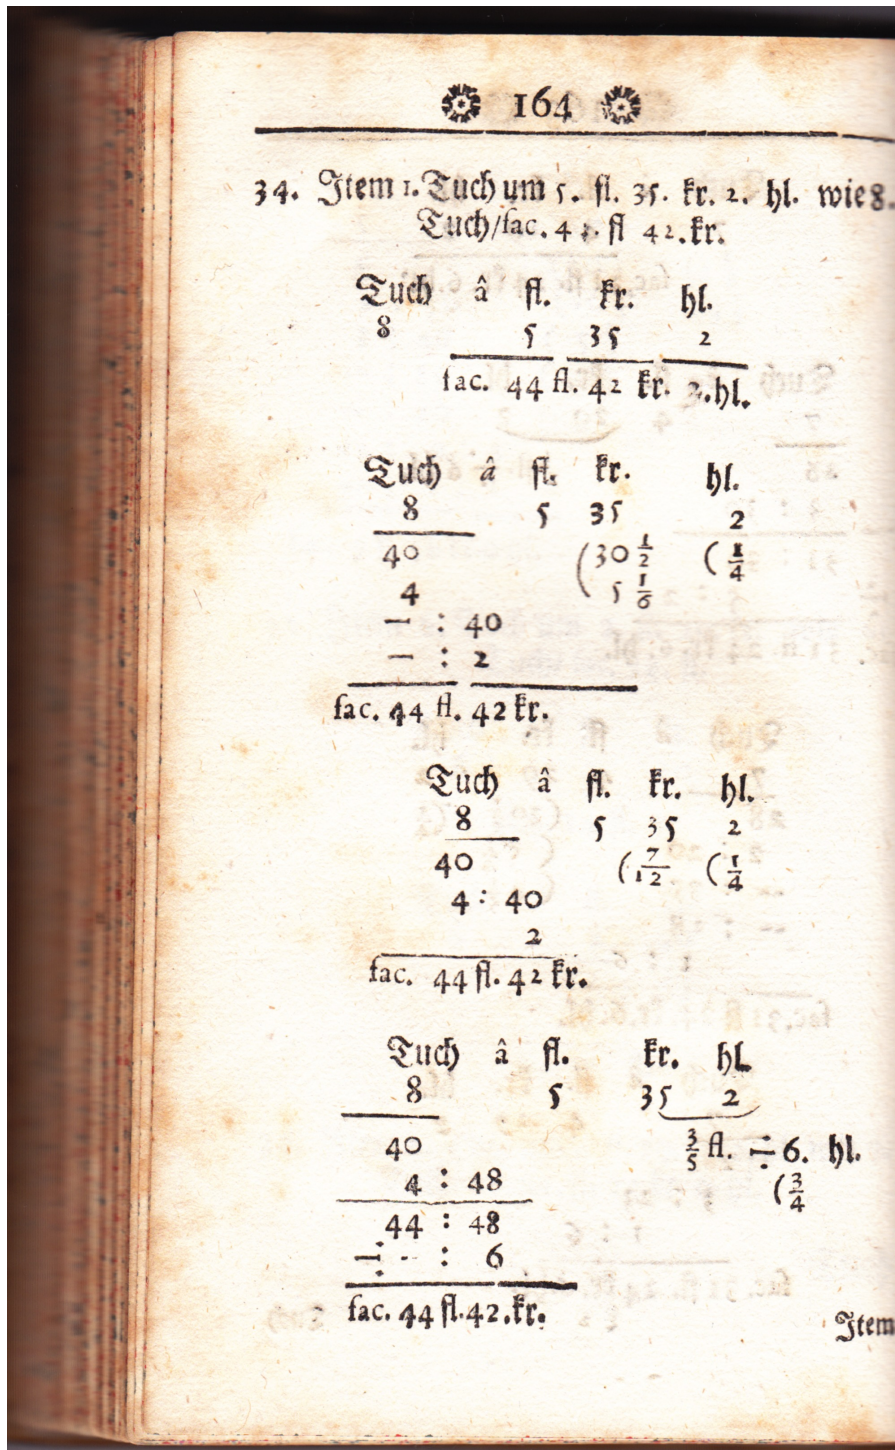 164
34. Item 1. Tuch um 5. fl. 35. kr. 2. hl. wie 8.
Tuch/fac. 44. fl 42. kr.
Tuch â fl. kr. hl.
8 5 35 2
fac. 44 fl. 42 kr. hl.
Tuch â fl. kr. hl.
8 5 35 2
40 (30 1/2 (1/4
4 ( 5 1/6
— : 40
— : 2
fac. 44 fl. 42 kr.
Tuch â fl. kr. hl.
8 5 35 2
40 (7/12 (1/4
4 : 40
2
fac. 44 fl. 42 kr.
Tuch â fl. kr. hl.
8 5 35 2
40 3/5 fl. ÷ 6. hl.
4 : 48 (3/4
44 : 48
÷ - : 6
fac. 44 fl. 42. kr.
Item